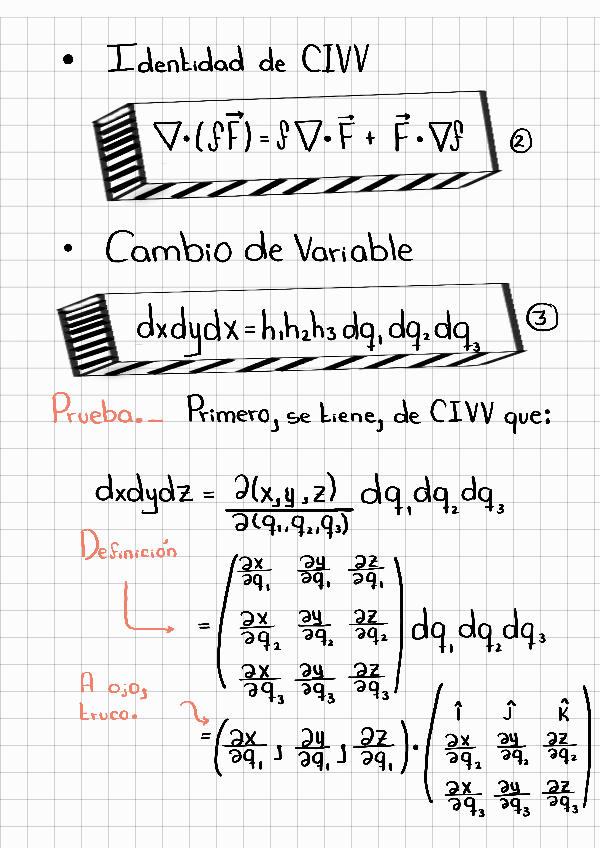 • Identidad de CIVV
∇·(fF⃗) = f∇·F⃗ + F⃗·∇f ②
• Cambio de Variable
dxdydx = h₁h₂h₃ dq₁ dq₂ dq₃ ③
Prueba.- Primero, se tiene, de CIVV que:
dxdydz = ∂(x,y,z)/∂(q₁,q₂,q₃) dq₁ dq₂ dq₃
Definición
= ( ∂x/∂q₁ ∂y/∂q₁ ∂z/∂q₁
∂x/∂q₂ ∂y/∂q₂ ∂z/∂q₂
∂x/∂q₃ ∂y/∂q₃ ∂z/∂q₃ ) dq₁ dq₂ dq₃
A ojo,
truco.
= (∂x/∂q₁, ∂y/∂q₁, ∂z/∂q₁) · ( î ĵ k̂
∂x/∂q₂ ∂y/∂q₂ ∂z/∂q₂
∂x/∂q₃ ∂y/∂q₃ ∂z/∂q₃ )